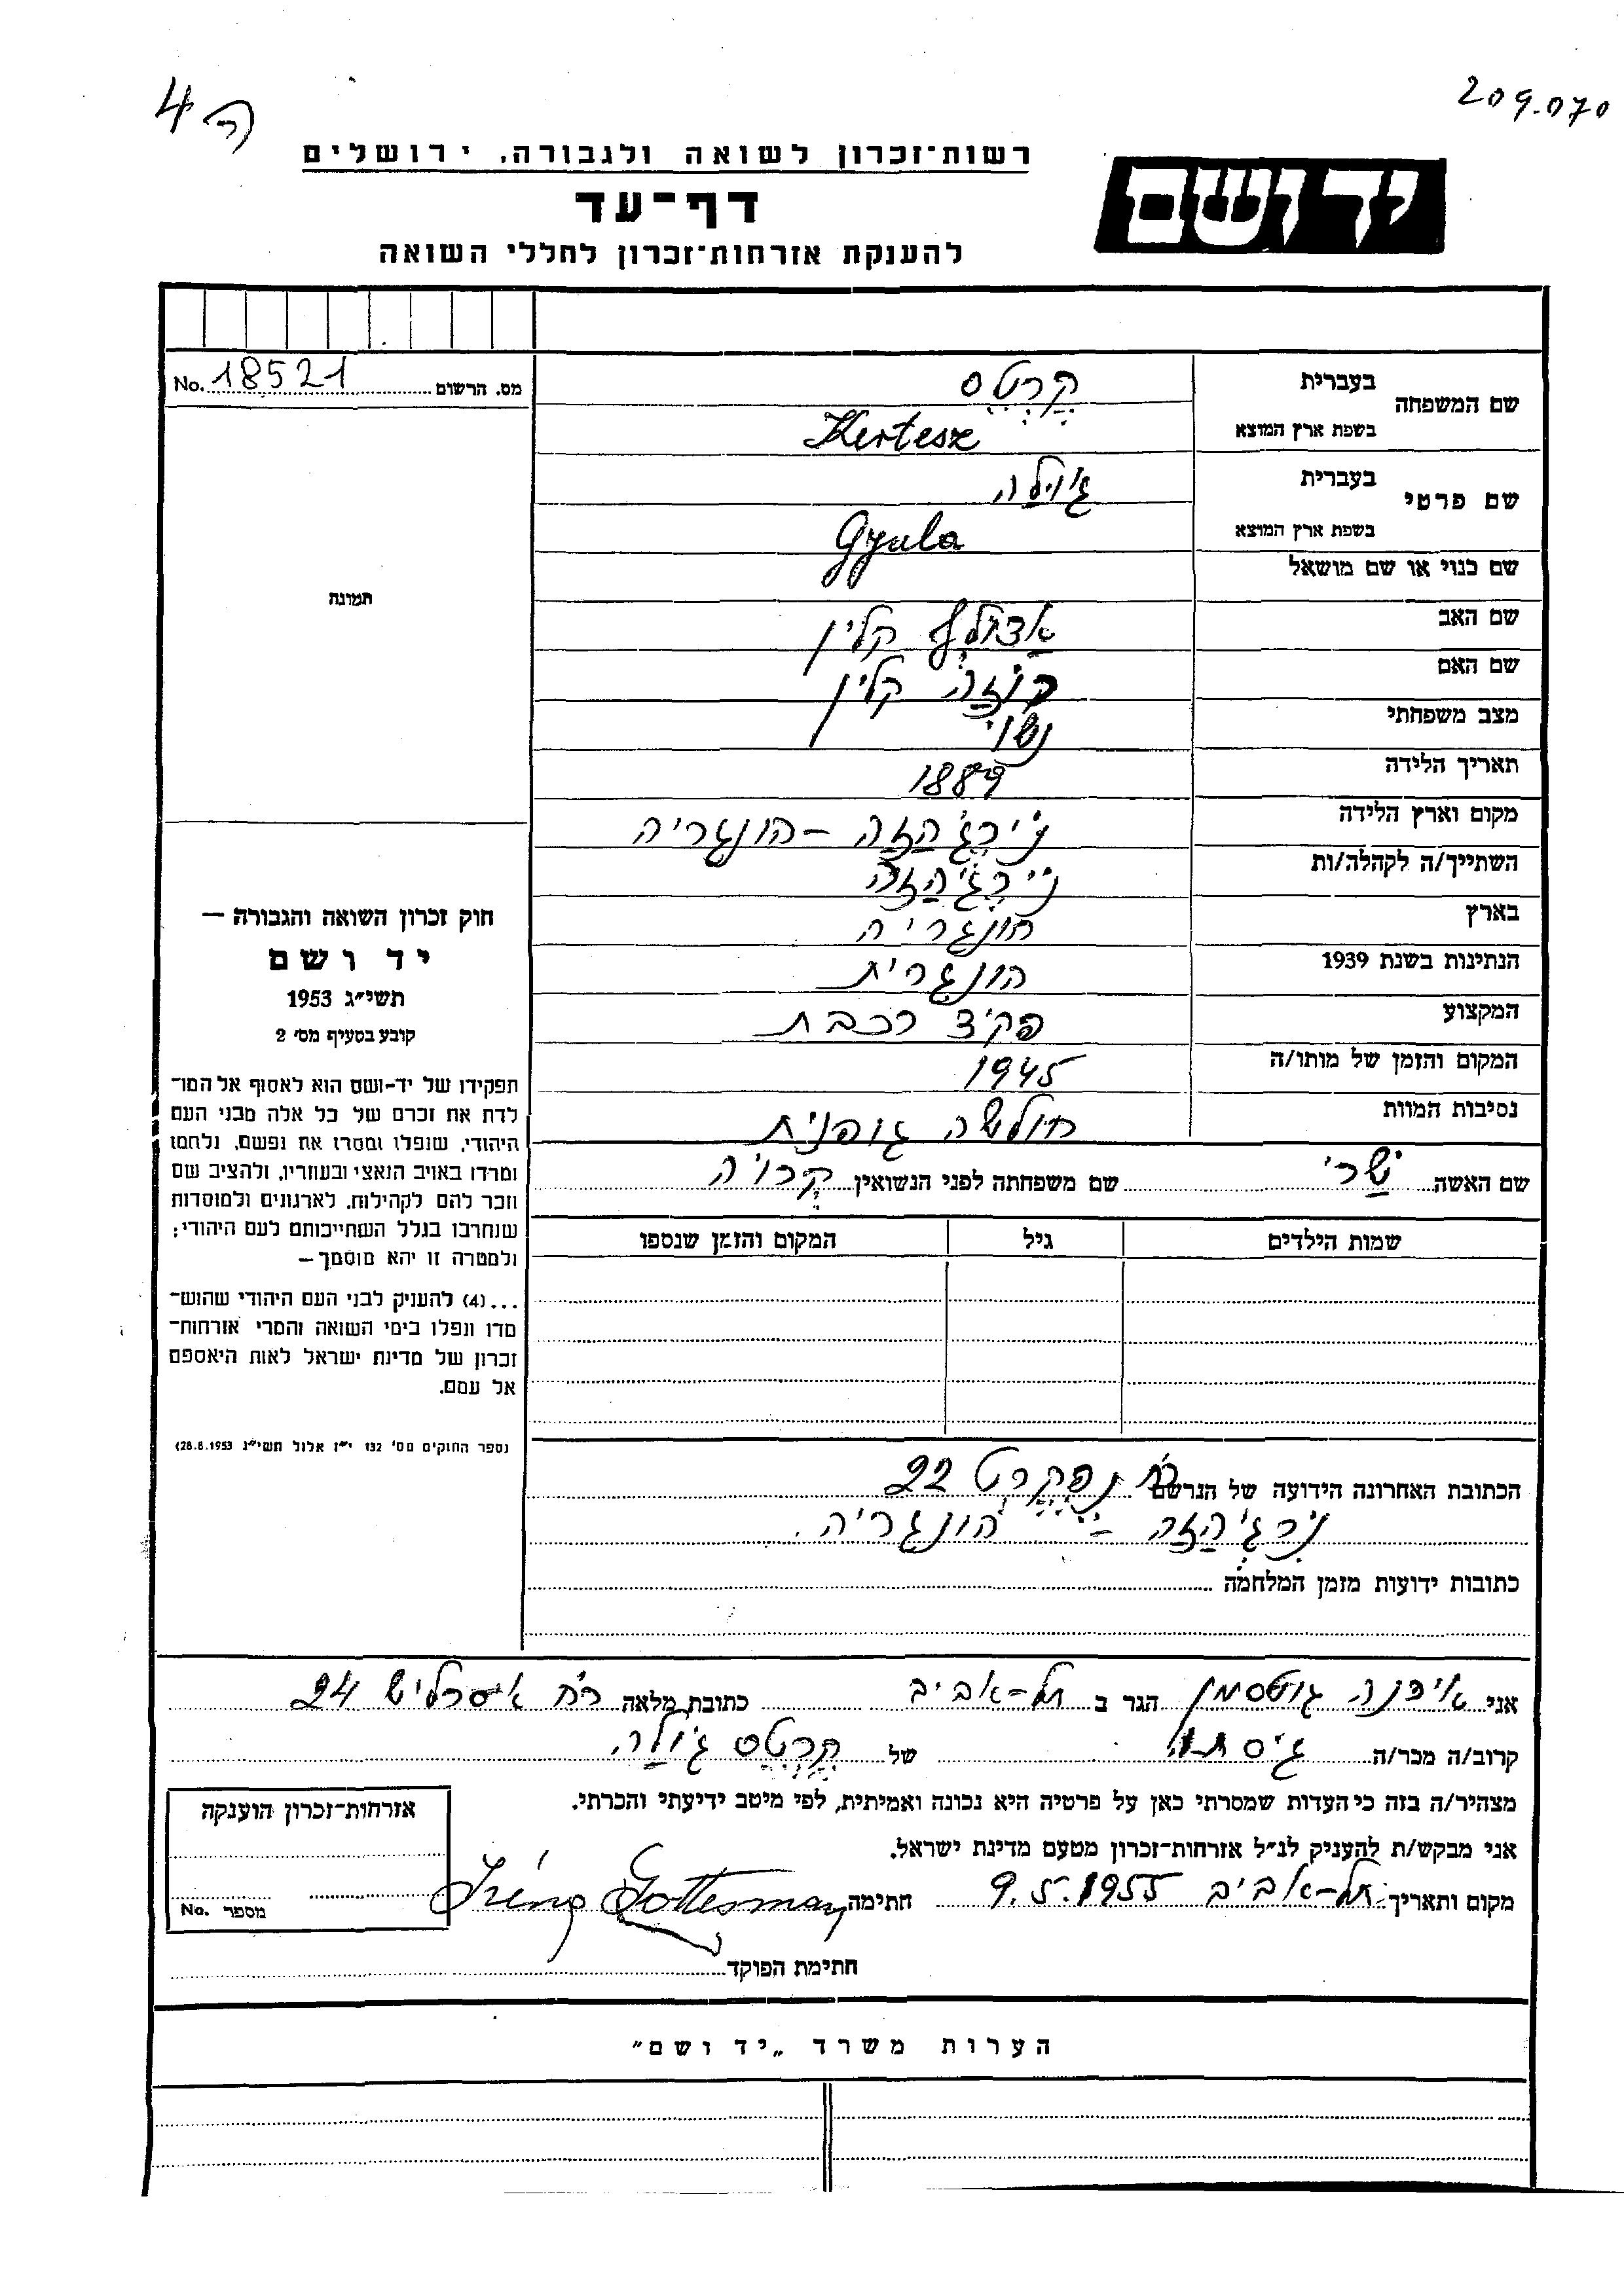 4 ה
209.070
רשות־זכרון לשואה ולגבורה, ירושלים
יד ושם
דף־עד
להענקת אזרחות־זכרון לחללי השואה
מס. הרשום 18521 No.
שם המשפחה
בעברית קרטס
בשפת ארץ המוצא Kertesz
שם פרטי
בעברית גיולה
בשפת ארץ המוצא Gyula
שם כנוי או שם מושאל
שם האב אדולף קליין
שם האם קליין
מצב משפחתי נשוי
תאריך הלידה 1889
מקום וארץ הלידה נירג'הזה – הונגריה
השתייך/ה לקהלה/ות ניירג'הזה
בארץ הונגריה
הנתינות בשנת 1939 הונגרית
המקצוע פקיד רכבת
המקום והזמן של מותו/ה 1945
נסיבות המוות חולשה גופנית
שם האשה שרי שם משפחתה לפני הנשואין
שמות הילדים גיל המקום והזמן שנספו
תמונה
חוק זכרון השואה והגבורה –
יד ושם
תשי״ג 1953
קובע בסעיף מס׳ 2
תפקידו של יד־ושם הוא לאסוף אל המו־
לדת את זכרם של כל אלה מבני העם
היהודי, שנפלו ומסרו את נפשם, נלחמו
ומרדו באויב הנאצי ובעוזריו, ולהציב שם
וזכר להם לקהילות, לארגונים ולמוסדות
שנחרבו בגלל השתייכותם לעם היהודי;
ולמטרה זו יהא מוסמך –
...(4) להעניק לבני העם היהודי שהוש־
מדו ונפלו בימי השואה והמרי אזרחות־
זכרון של מדינת ישראל לאות היאספם
אל עמם.
(ספר החוקים מס׳ 132 י״ז אלול תשי״ג 28.8.1953)
הכתובת האחרונה הידועה של הנרשם רח' 22
נירג'הזה – הונגריה.
כתובות ידועות מזמן המלחמה
אני גוטסמן הגר ב תל־אביב כתובת מלאה רח' איסרליש 24
קרוב/ה מכר/ה גיסתו של קרטס גיולה
מצהיר/ה בזה כי העדות שמסרתי כאן על פרטיה היא נכונה ואמיתית, לפי מיטב ידיעתי והכרתי.
אני מבקש/ת להעניק לנ״ל אזרחות־זכרון מטעם מדינת ישראל.
מקום ותאריך תל־אביב 9.5.1955 חתימה Iréne Gottesman
חתימת הפוקד
אזרחות־זכרון הוענקה
מספר No.
הערות משרד „יד ושם״